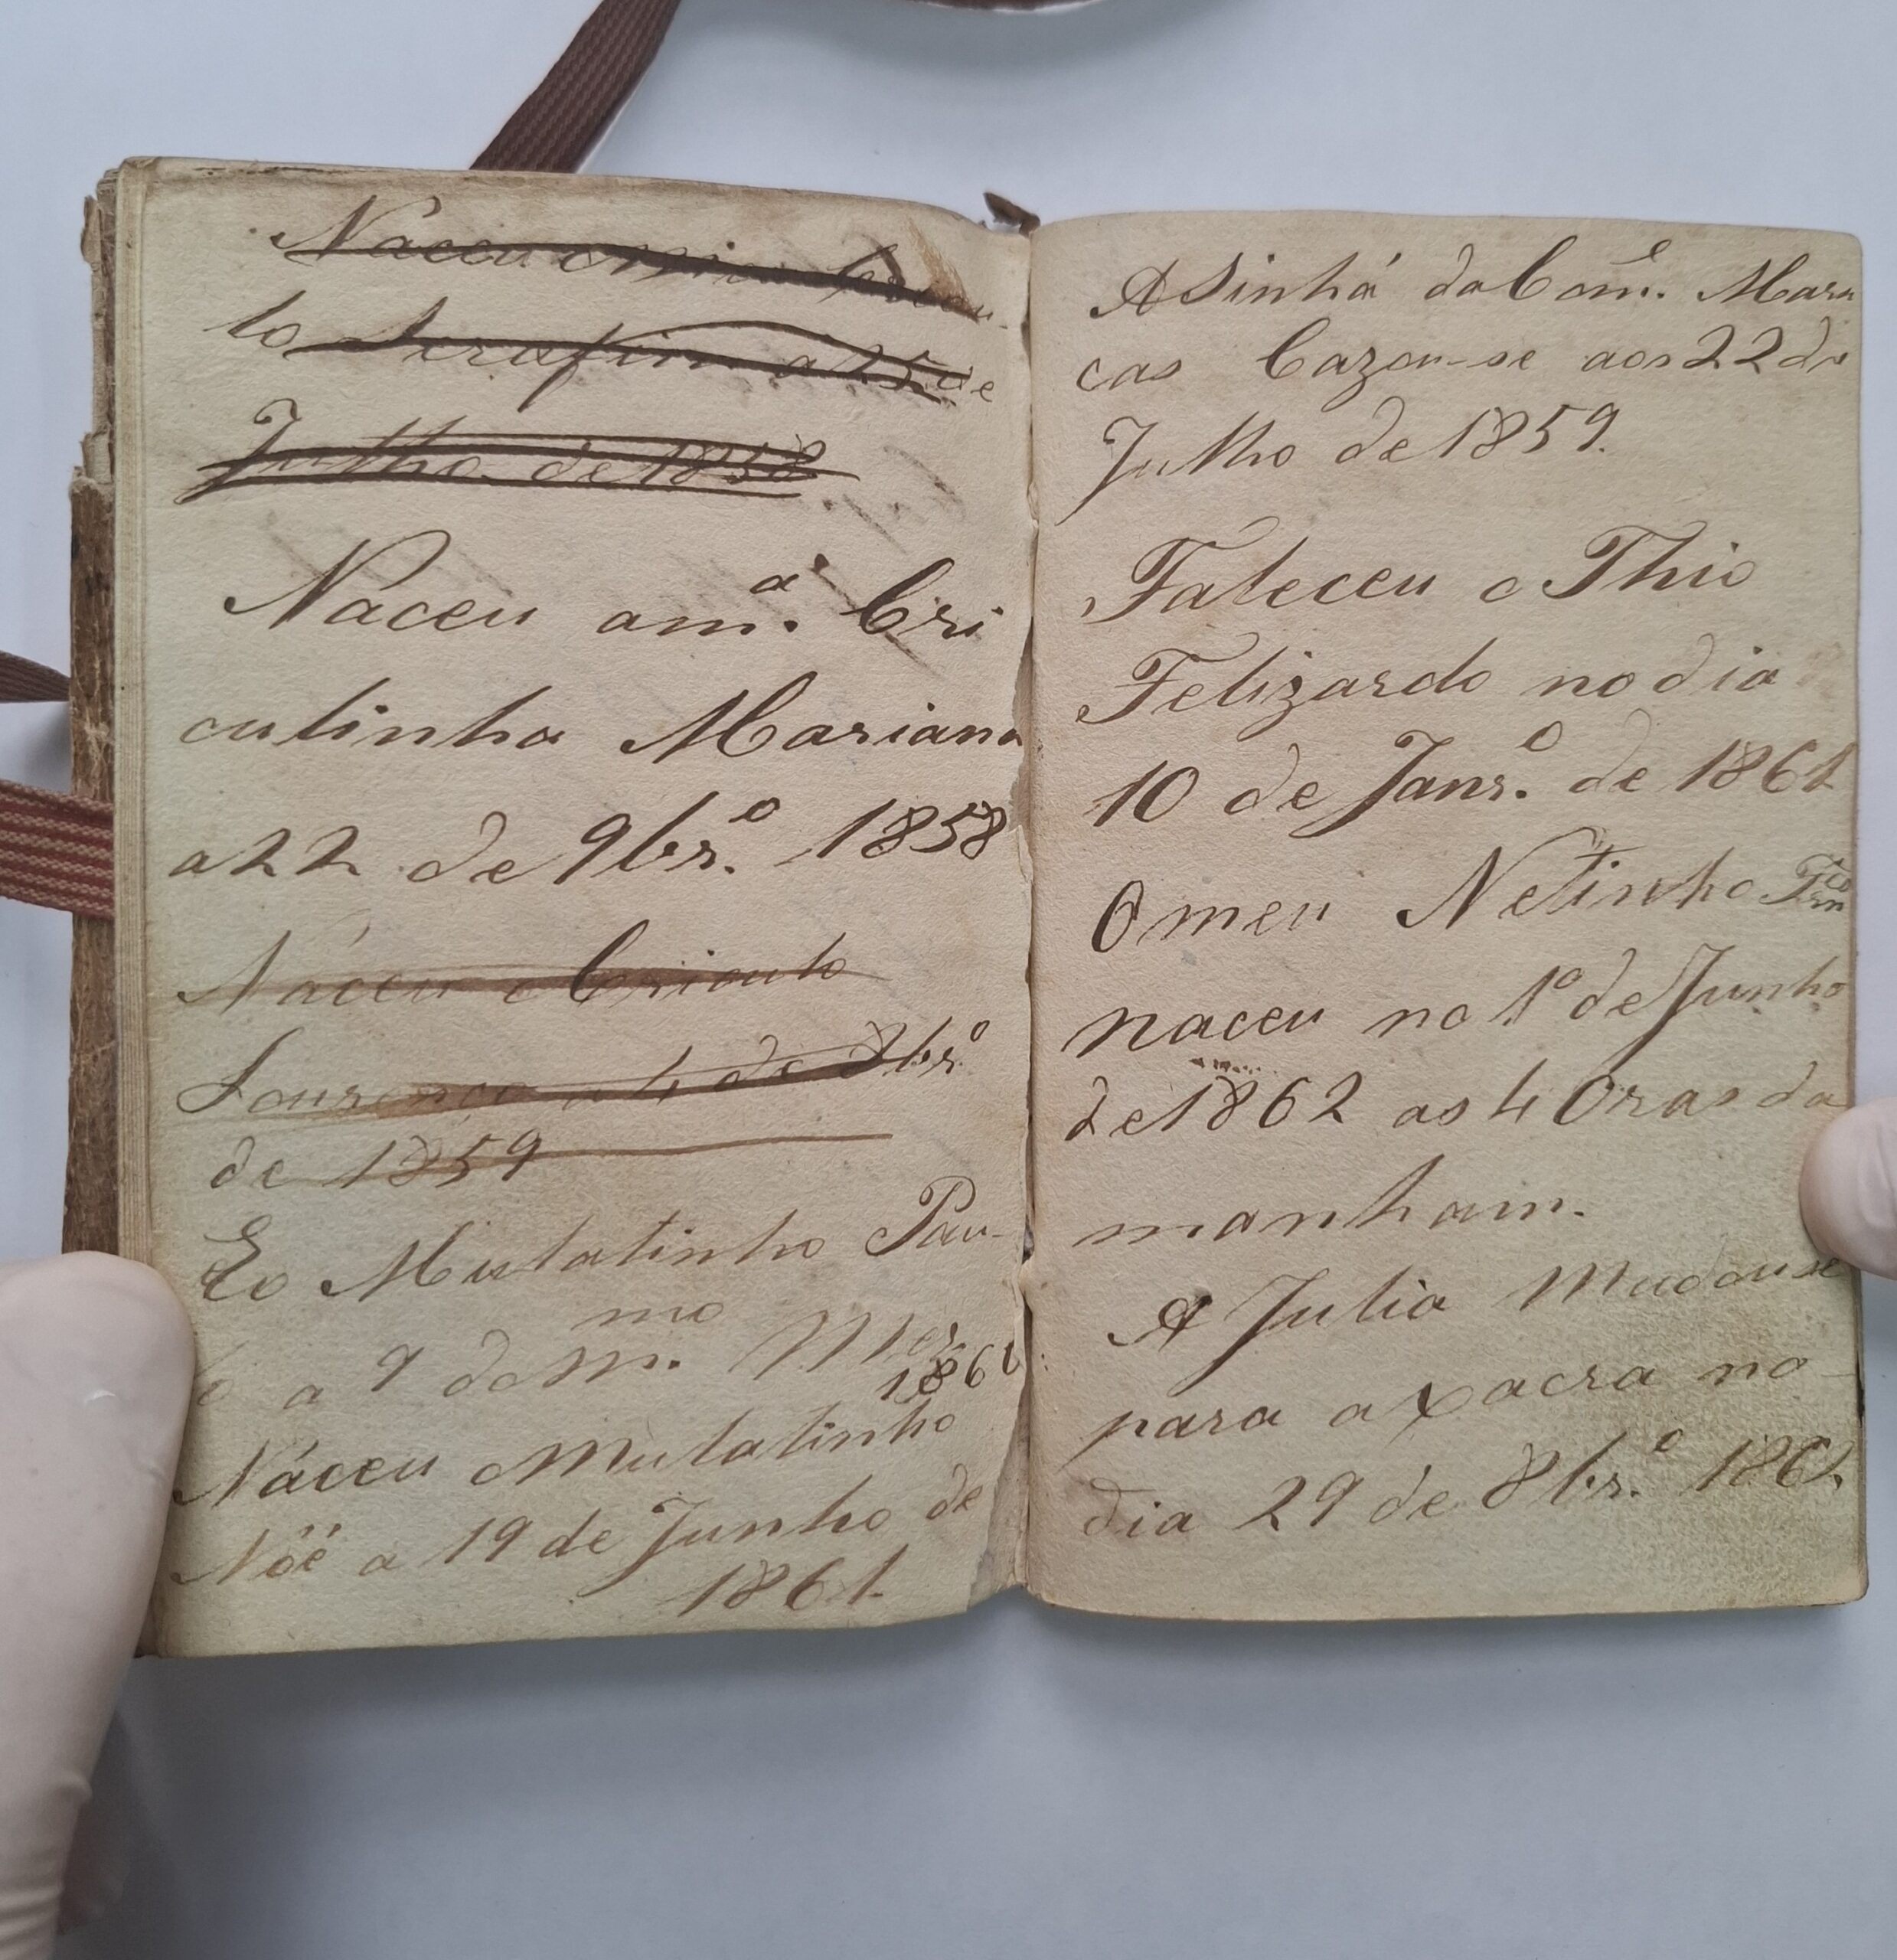 Naceu o meu Criou-
lo Serafim a 25 de
Julho de 1858
Naceu a m.ª Cri
oulinha Mariana
a 22 de 9br.º 1858
Naceu o Crioulo
Lourenço a 4 de 8br.º
de 1859
E o Mulatinho Pau-
lo a 9 do m.mo Mez
1861
Naceu o Mulatinho
Nóé a 19 de Junho de
1861.
A Sinhá da Com.e Mari
cas Cazou-se aos 22 de
Julho de 1859.
Faleceu o Thio
Felizardo no dia
10 de Janr.º de 1861
O meu Netinho
naceu no 1º de Junho
de 1862 as 4 Oras da
manham.
A Julia Mudou se
para a xacra no
dia 29 de 8br.º